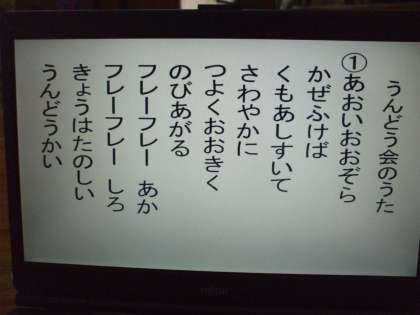 うんどう会のうた
①あおいおおぞら
かぜふけば
くもあしすいて
さわやかに
つよくおおきく
のびあがる
フレーフレー　あか
フレーフレー　しろ
きょうはたのしい
うんどうかい